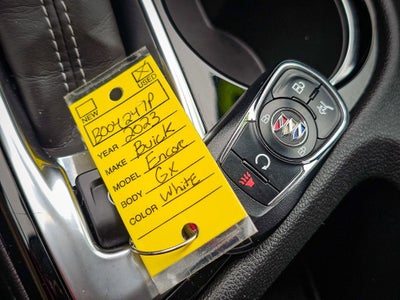 NEW
USED
B004247P
YEAR 2023
MAKE Buick
MODEL Encore
BODY GX
COLOR White